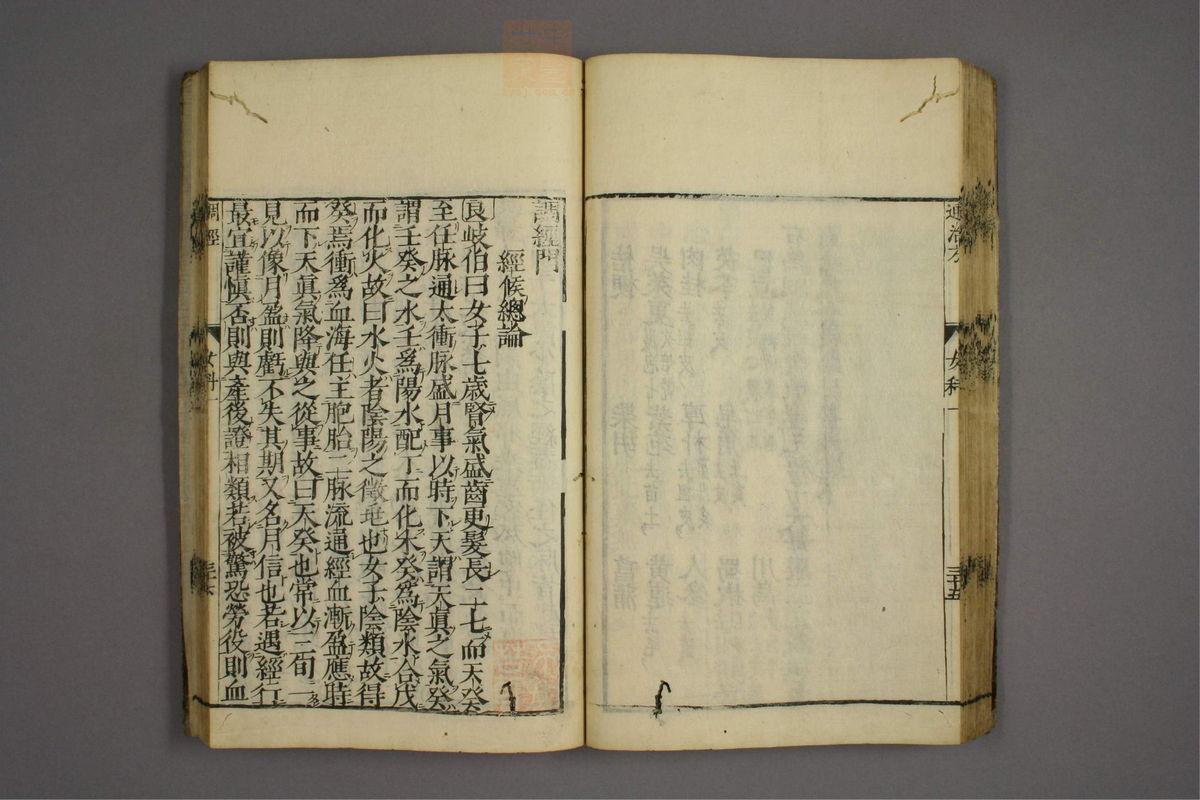 通治方
女科一
三十五
調經門
經候總論
良歧伯曰女子七歲腎氣盛齒更髮長二七而天癸
至任脉通太衝脉盛月事以時下天謂天眞之氣癸
謂壬癸之水壬爲陽水配丁而化木癸爲陰水合戊
而化火故曰水火者陰陽之徵兆也女子陰類故得
癸焉衝爲血海任主胞胎二脉流通經血漸盈應時
而下天眞氣降與之從事故曰天癸也常以三旬一
見以像月盈則虧不失其期又名月信也若遇經行
最宜謹愼否則與產後證相類若被驚恐勞役則血
調經
女科一